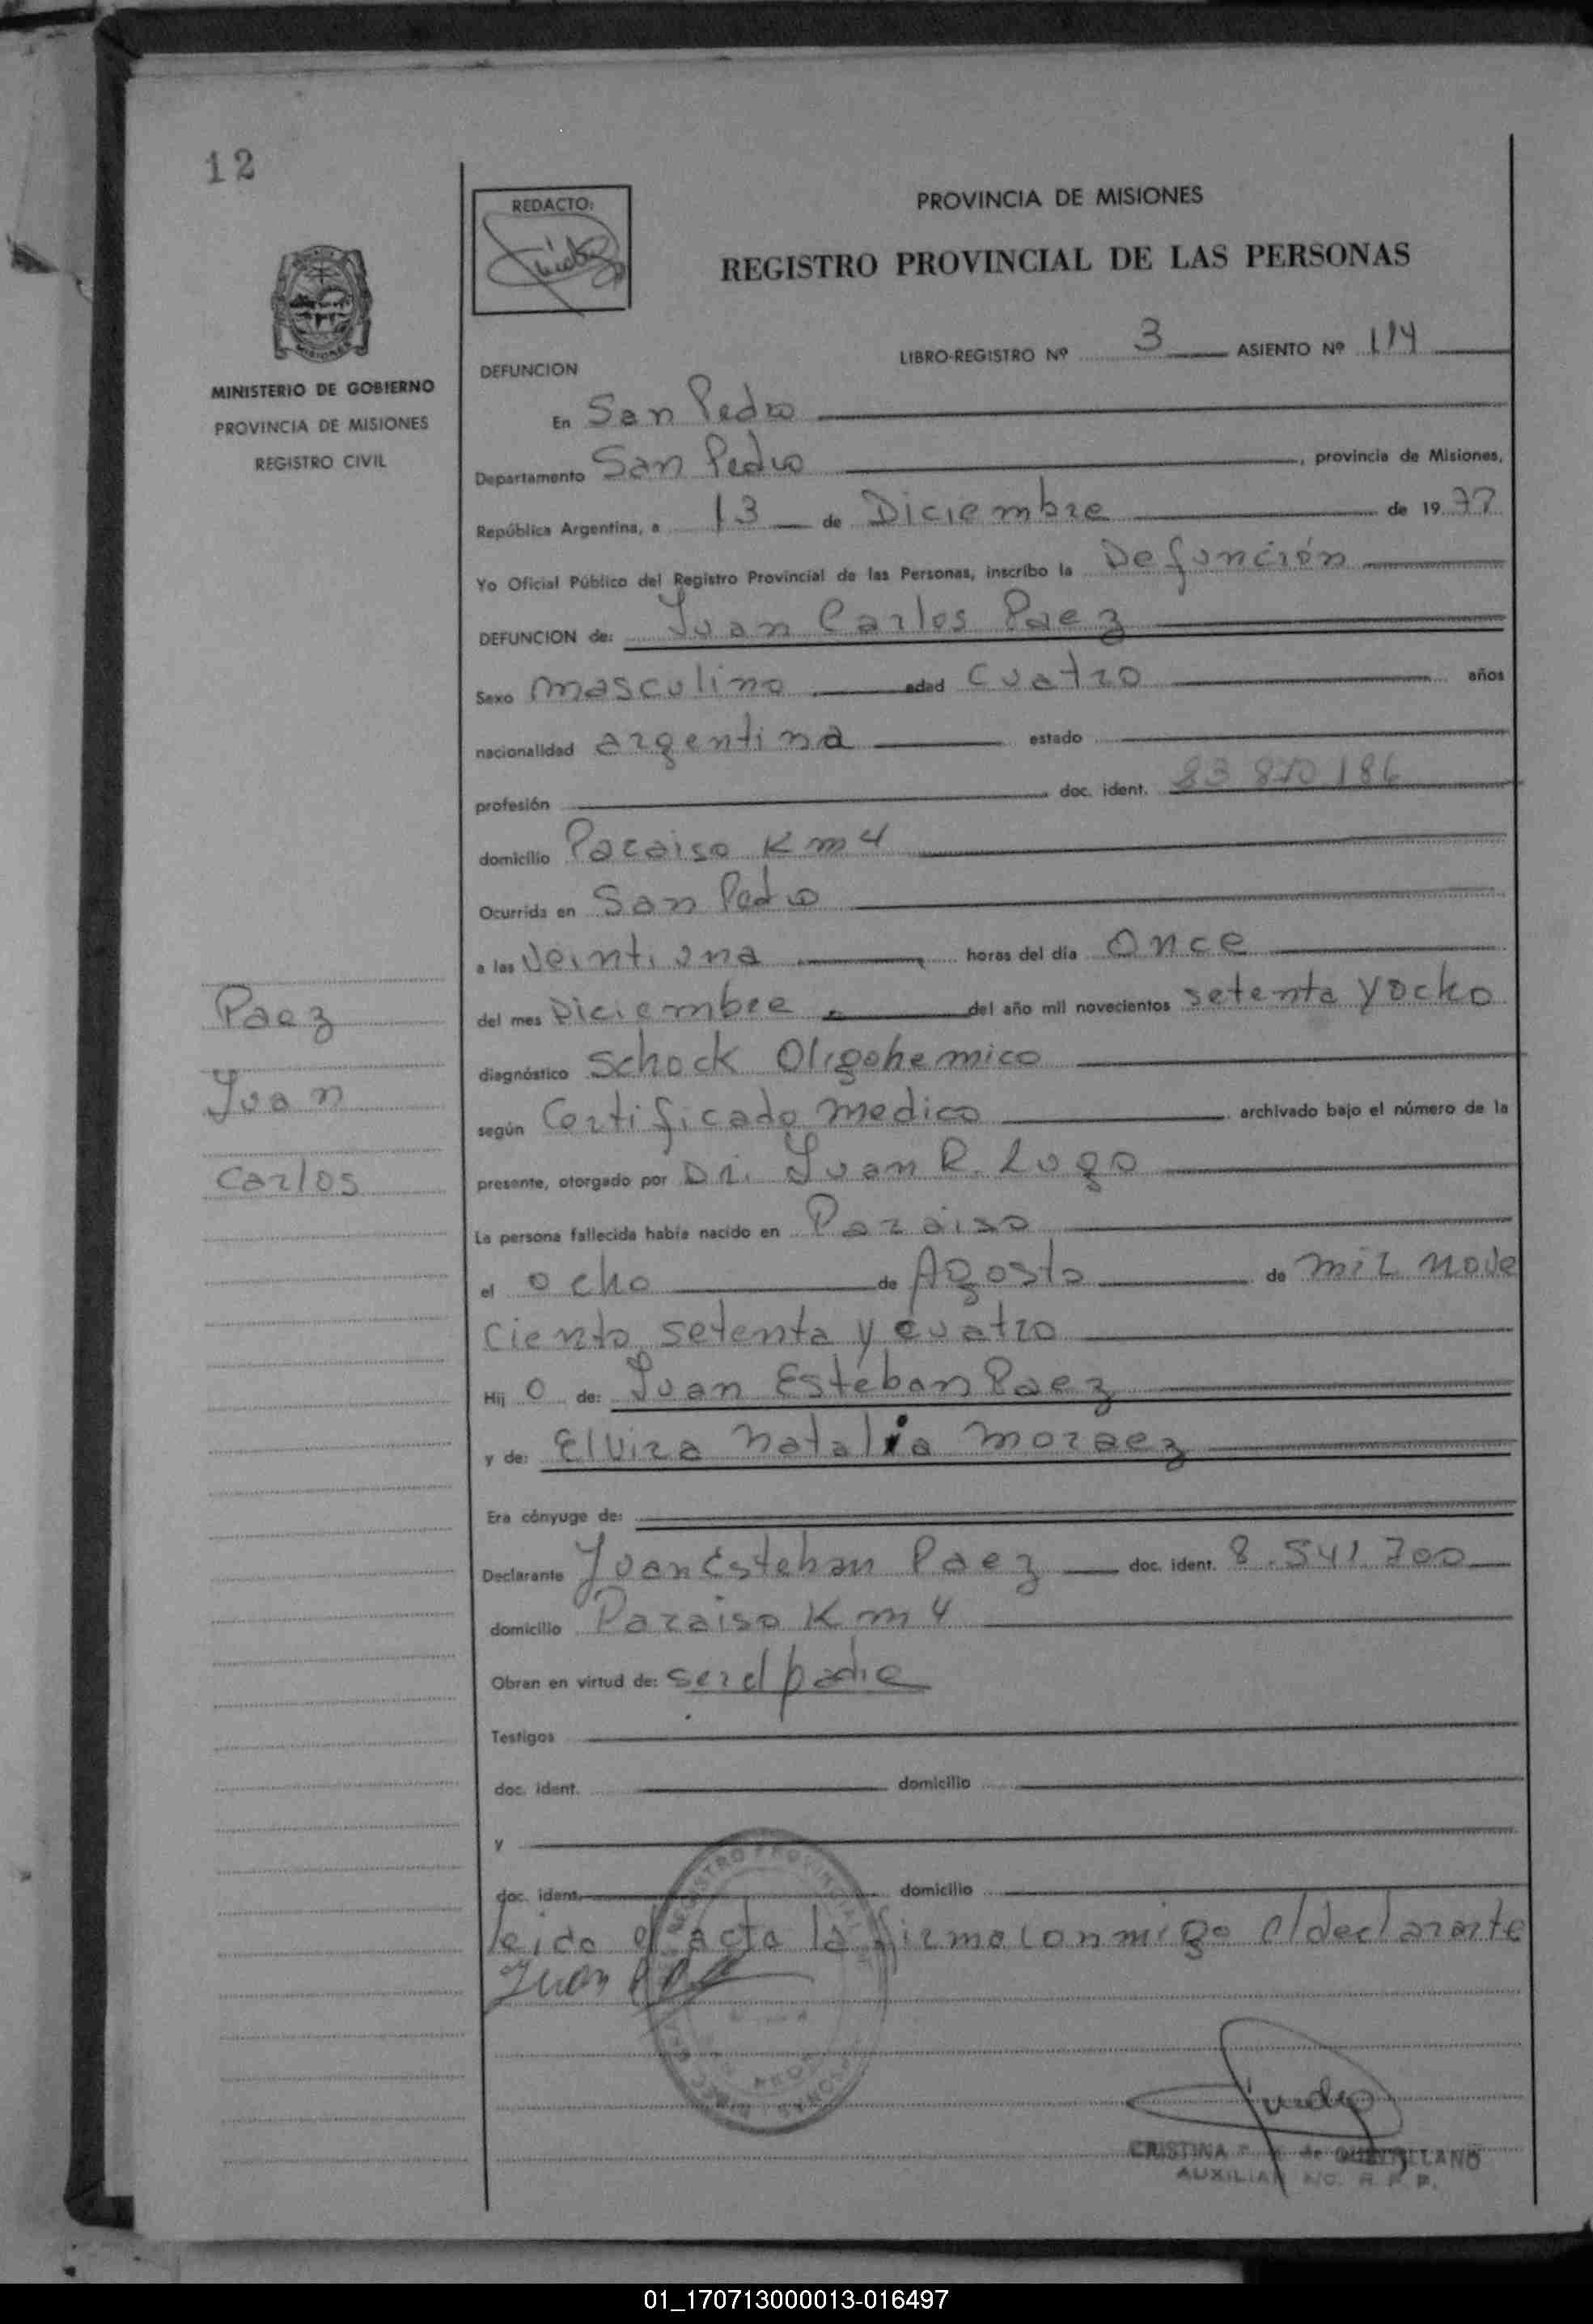 12
REDACTO:
PROVINCIA DE MISIONES
REGISTRO PROVINCIAL DE LAS PERSONAS
MINISTERIO DE GOBIERNO
PROVINCIA DE MISIONES
REGISTRO CIVIL
LIBRO-REGISTRO Nº 3 ASIENTO Nº 114
DEFUNCION
En San Pedro
Departamento San Pedro, provincia de Misiones,
República Argentina, a 13 de Diciembre de 1977
Yo Oficial Público del Registro Provincial de las Personas, inscribo la Defunción
DEFUNCION de: Juan Carlos Paez
Sexo masculino edad cuatro años
nacionalidad argentina estado
profesión doc. ident.
domicilio Paraiso Km 4
Ocurrida en San Pedro
a las veintiuna horas del día once
del mes Diciembre del año mil novecientos setenta y ocho
diagnóstico Schock Oligohemico
según Certificado medico archivado bajo el número de la
presente, otorgado por Dr. Juan R. Lugo
La persona fallecida había nacido en Paraiso
el ocho de Agosto de mil nove
ciento setenta y cuatro
Hij o de: Juan Esteban Paez
y de: Elvira Natalia Moraez
Era cónyuge de:
Declarante Juan Esteban Paez doc. ident. 8.541.700
domicilio Paraiso Km 4
Obran en virtud de: ser el padre
Testigos
doc. ident. domicilio
y
doc. ident. domicilio
leido el acta la firma conmigo el declarante
Juan
Paez
Juan
Carlos
CRISTINA de
AUXILIAR A/C. R. P. P.
01_170713000013-016497